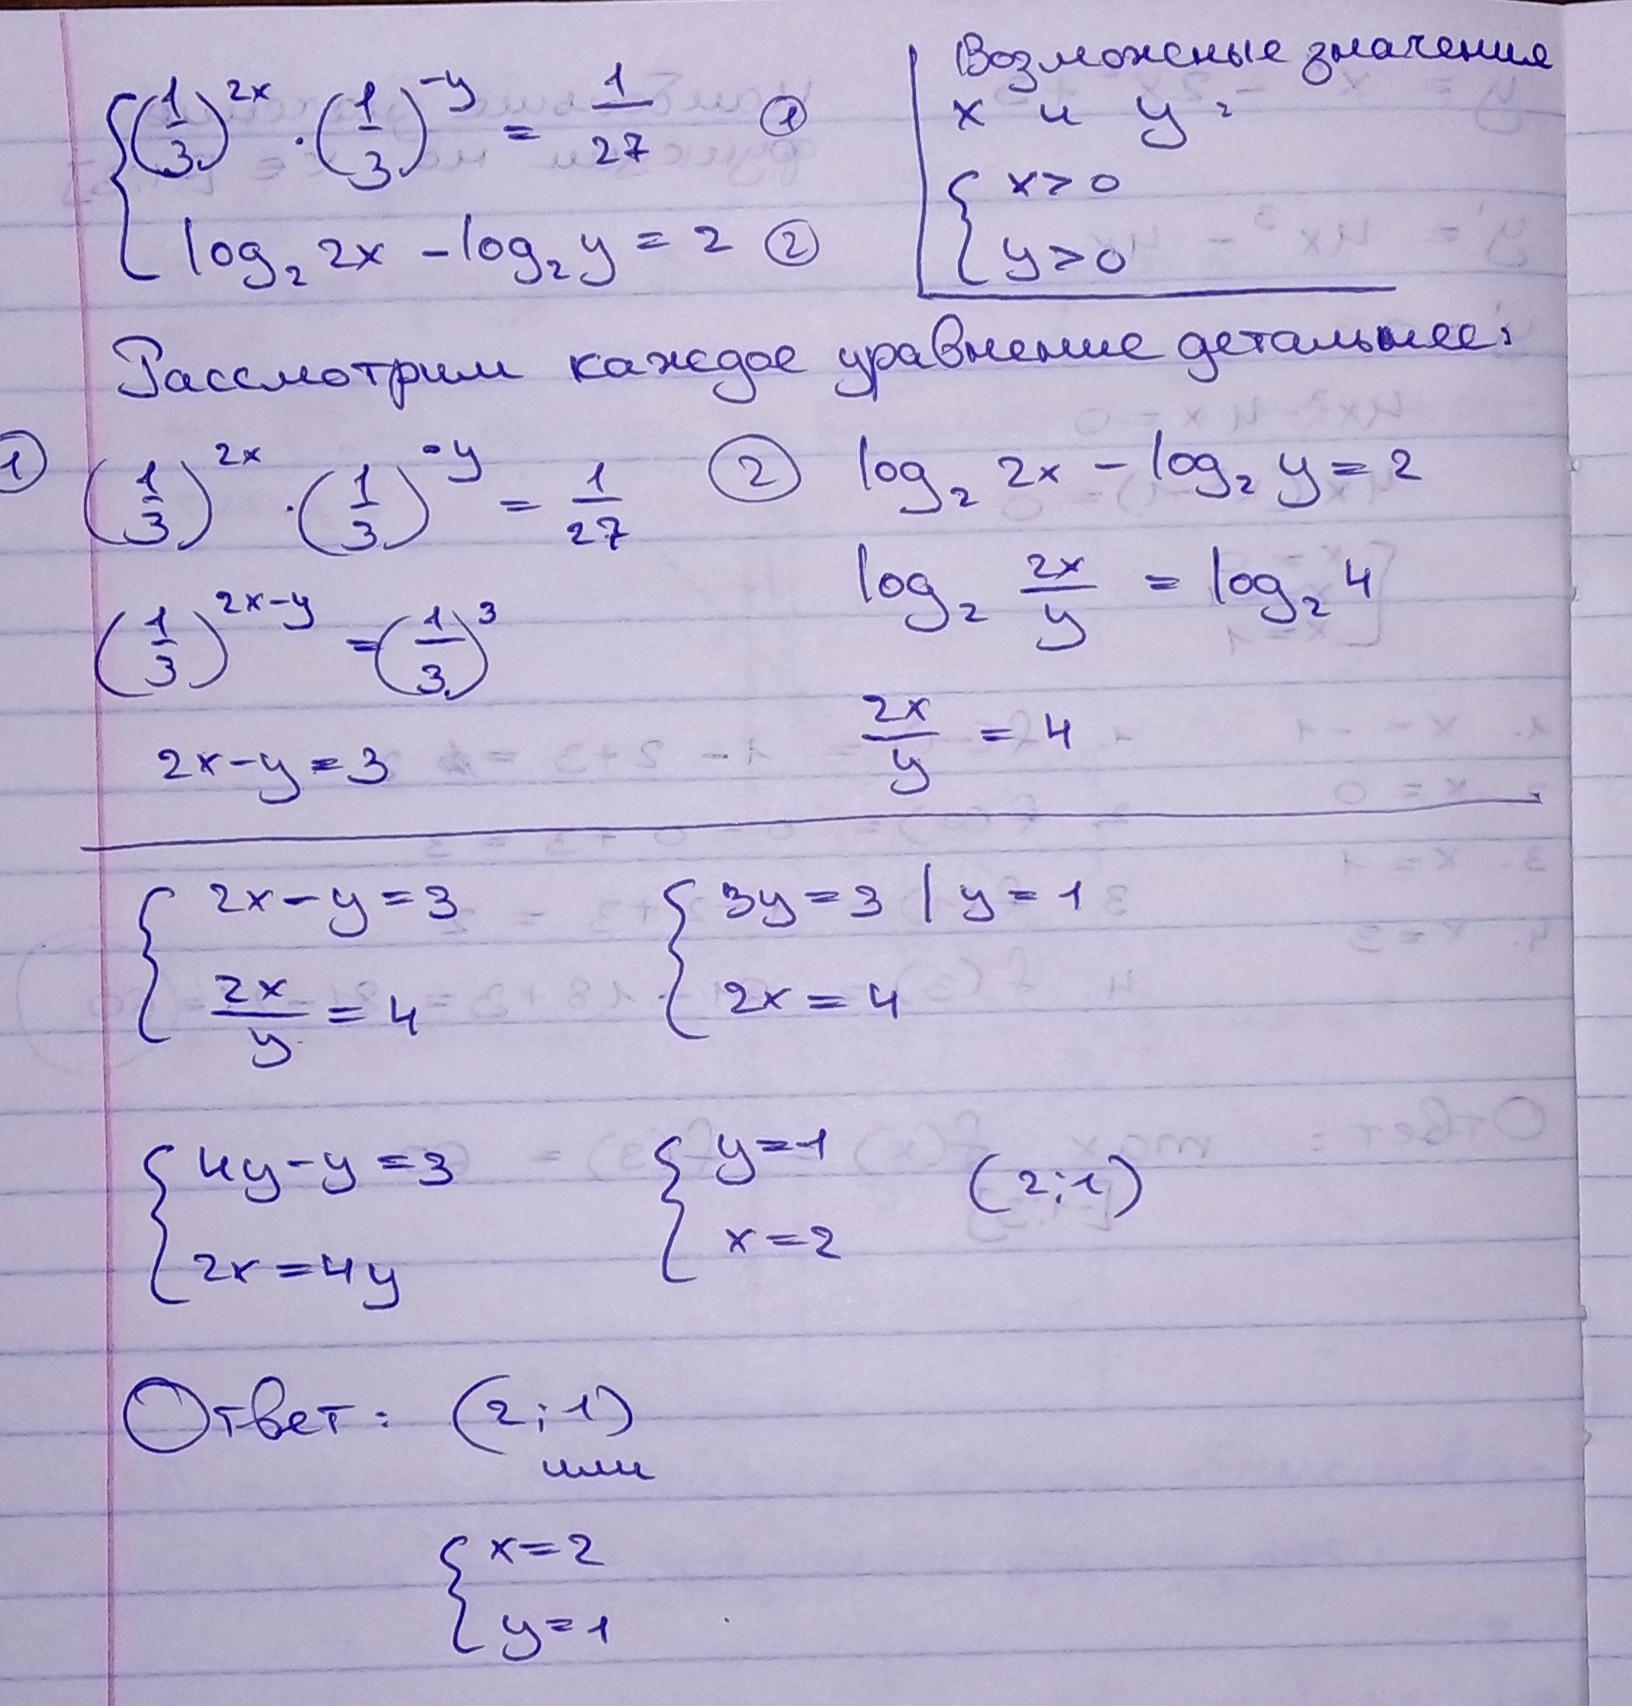 { (1/3)^2x · (1/3)^-y = 1/27 ①
log₂ 2x - log₂ y = 2 ②
Возможные значения
x и y:
{ x > 0
y > 0
Рассмотрим каждое уравнение детальнее:
① (1/3)^2x · (1/3)^-y = 1/27
(1/3)^2x-y = (1/3)^3
2x - y = 3
② log₂ 2x - log₂ y = 2
log₂ 2x/y = log₂ 4
2x/y = 4
{ 2x - y = 3
2x/y = 4
{ 4y - y = 3
2x = 4y
{ 3y = 3 | y = 1
2x = 4
{ y = 1
x = 2
(2; 1)
Ответ: (2; 1)
или
{ x = 2
y = 1